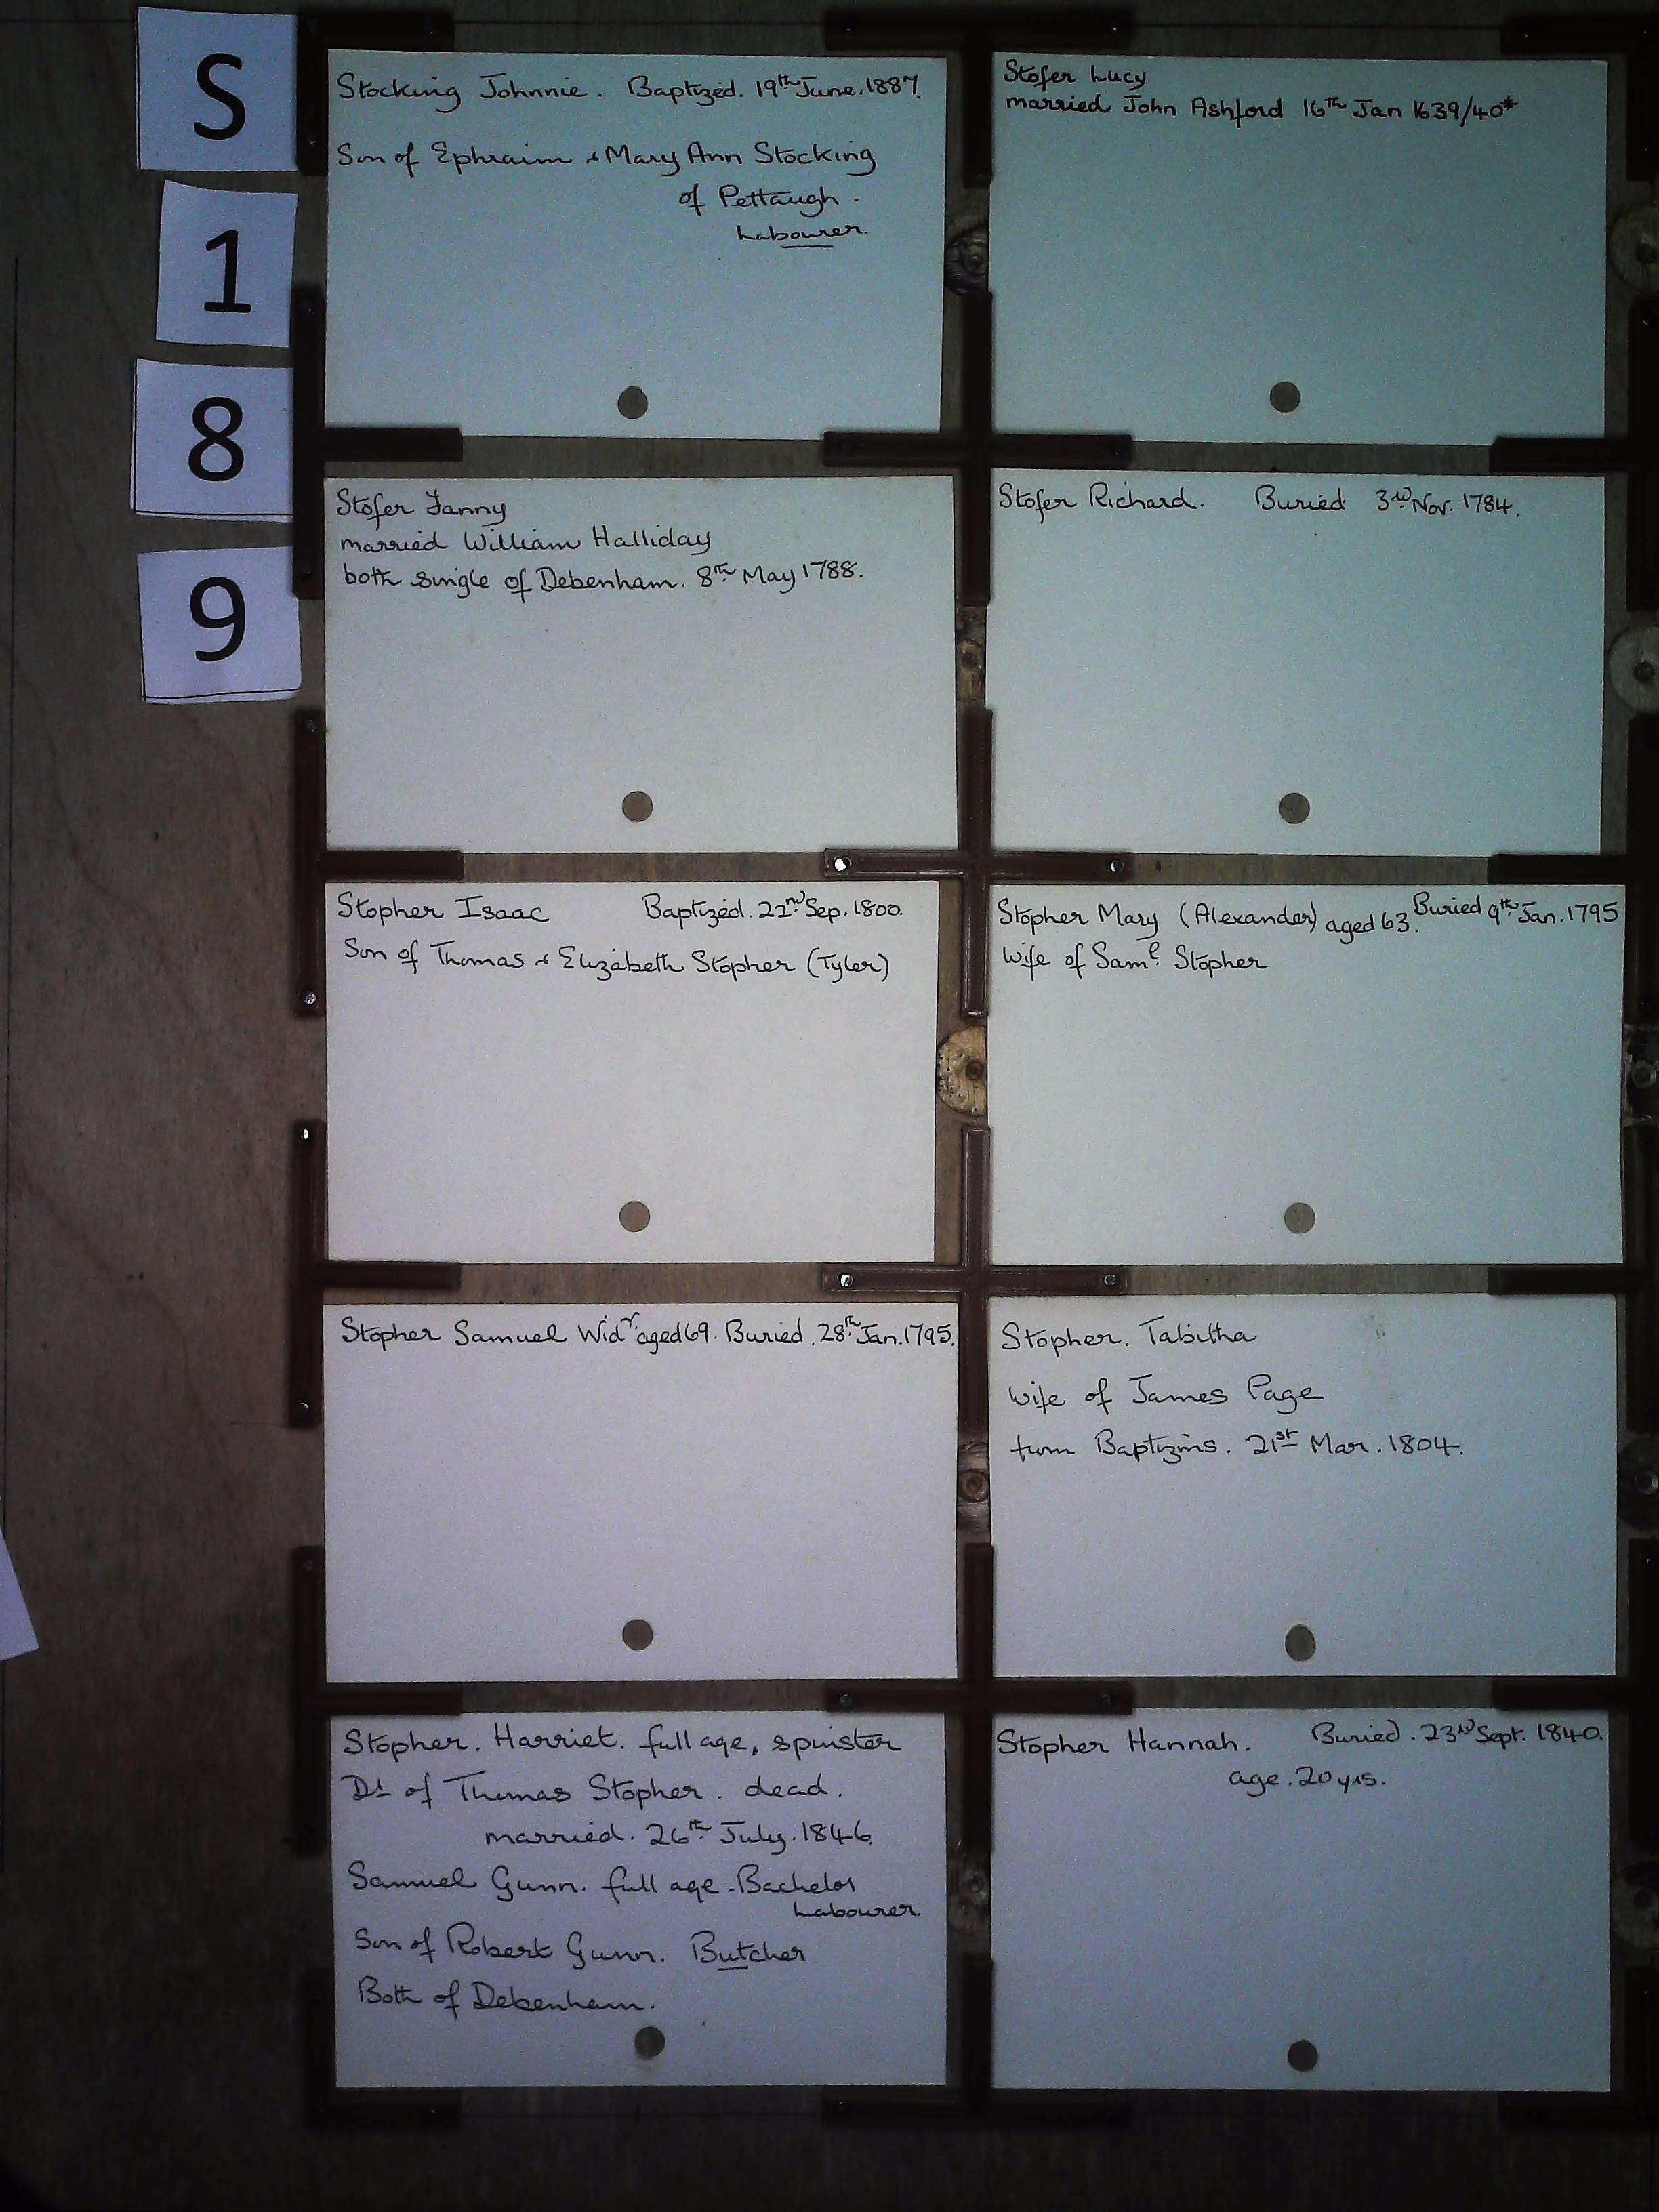 S
1
8
9
Stocking Johnnie. Baptized. 19th June. 1887.
Son of Ephraim & Mary Ann Stocking
of Pettaugh.
Labourer.
Stofer Lucy
married John Ashford 16th Jan 1639/40*
Stofer Fanny
married William Halliday
both single of Debenham. 8th May 1788.
Stofer Richard. Buried 3rd Nov. 1784.
Stopher Isaac Baptized. 22nd Sep. 1800.
Son of Thomas & Elizabeth Stopher (Tyler)
Stopher Mary (Alexander) aged 63. Buried 9th Jan. 1795
Wife of Saml. Stopher
Stopher Samuel Widr. aged 69. Buried. 28th Jan. 1795.
Stopher. Tabitha
Wife of James Page
from Baptizms. 21st Mar. 1804.
Stopher. Harriet. full age, spinster
Dt of Thomas Stopher. dead.
married. 26th July. 1846.
Samuel Gunn. full age. Bachelor
Labourer.
Son of Robert Gunn. Butcher
Both of Debenham.
Stopher Hannah. Buried. 23rd Sept. 1840.
age. 20 yrs.